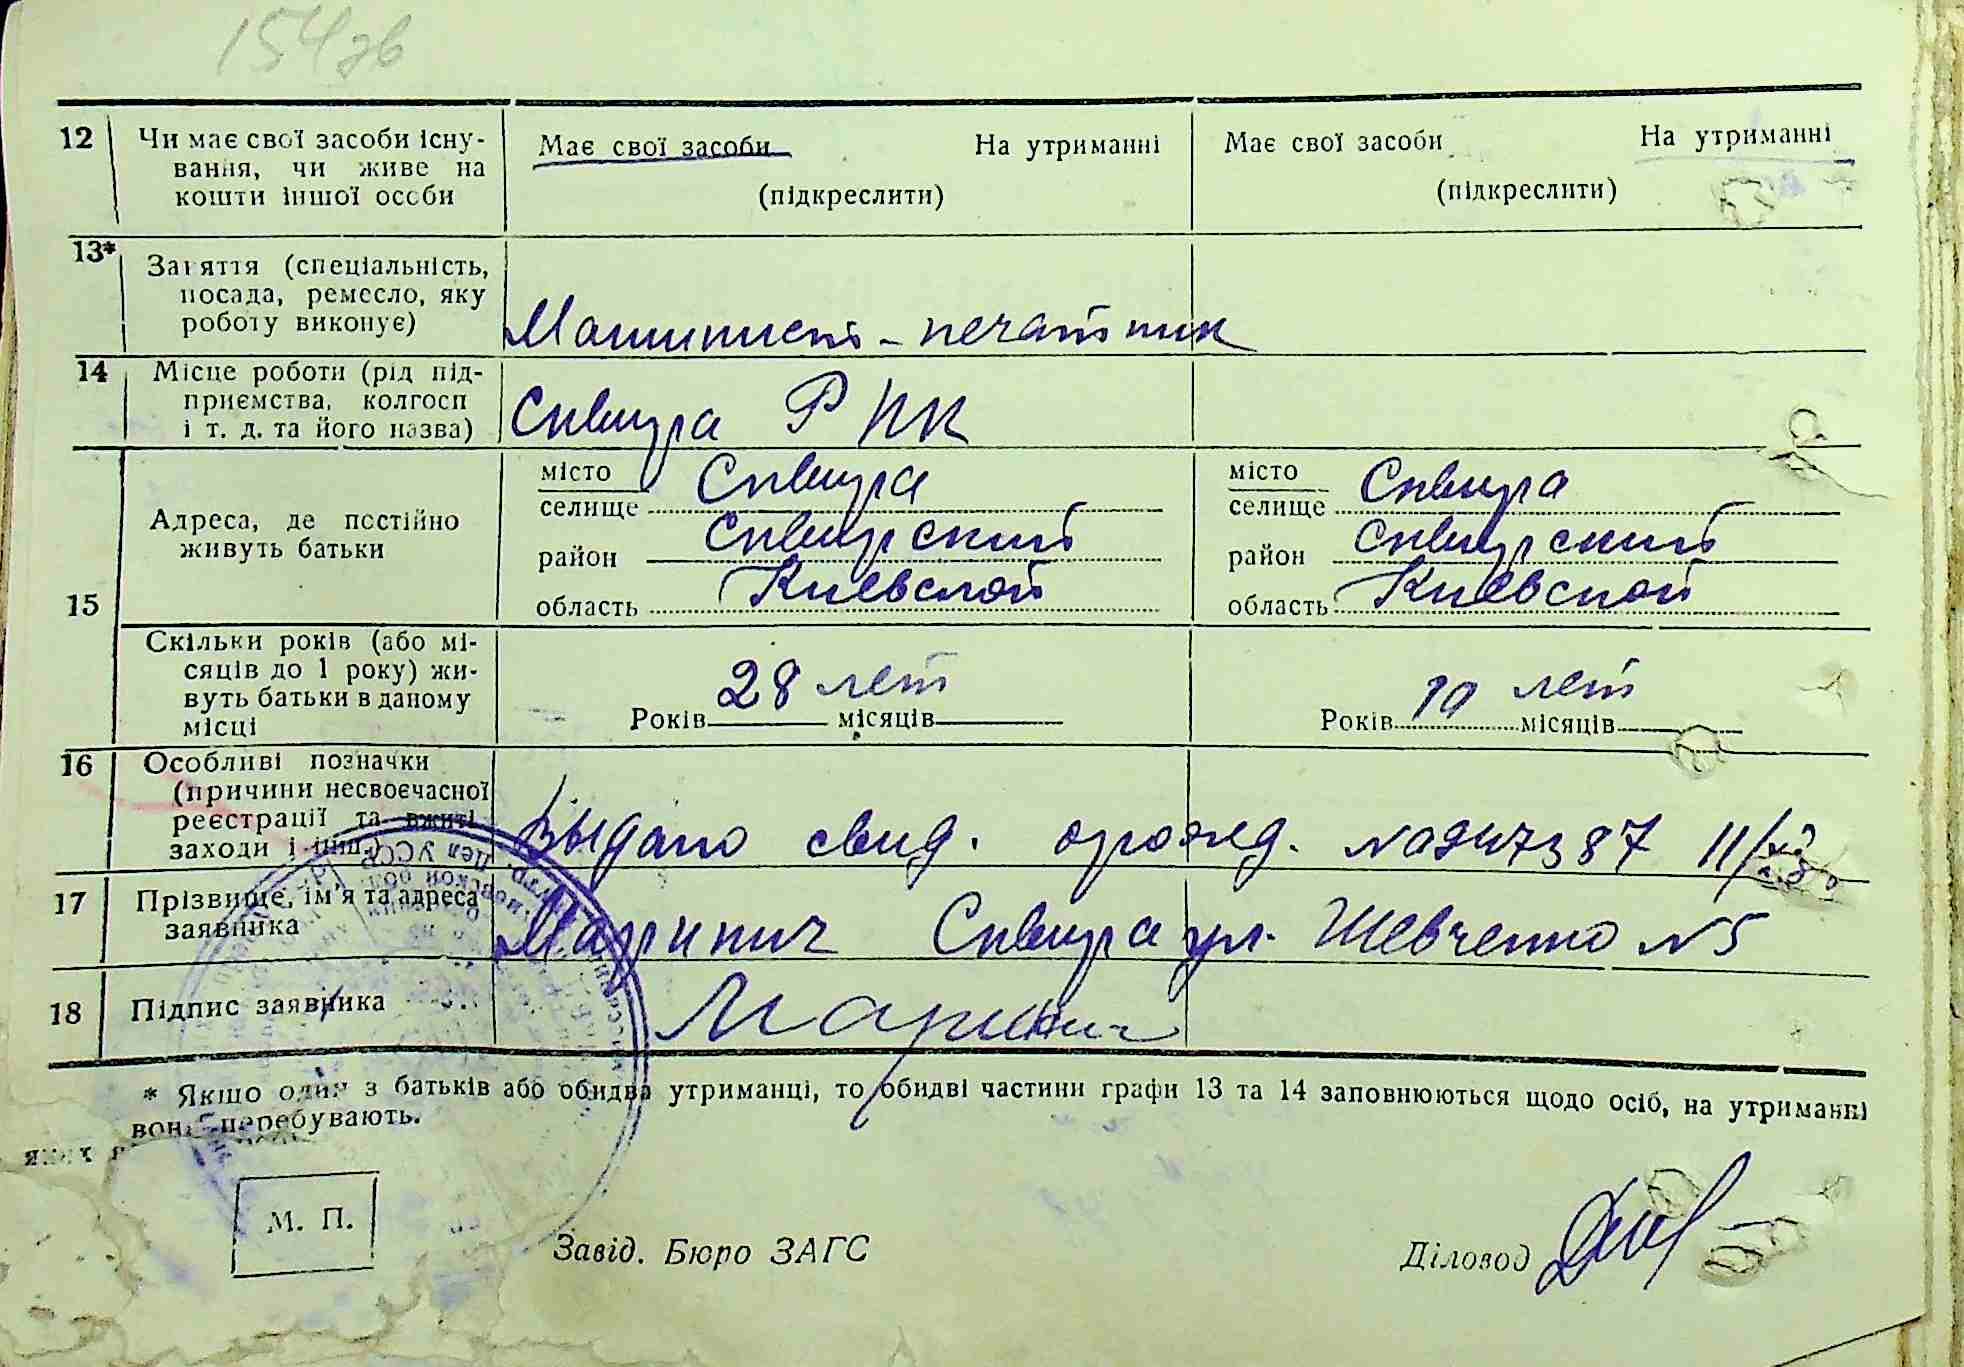 154зв
12 Чи має свої засоби існу-
вання, чи живе на
кошти іншої особи
Має свої засоби На утриманні
(підкреслити)
Має свої засоби На утриманні
(підкреслити)
13* Заняття (спеціальність,
посада, ремесло, яку
роботу виконує)
Машинист-печатник
14 Місце роботи (рід під-
приємства, колгосп
і т. д. та його назва)
Сквира РПК
15
Адреса, де постійно
живуть батьки
місто
селище Сквира
район Сквирский
область Киевской
місто
селище Сквира
район Сквирский
область Киевской
Скільки років (або мі-
сяців до 1 року) жи-
вуть батьки в даному
місці
28 лет
Років місяців
10 лет
Років місяців
16 Особливі позначки
(причини несвоєчасної
реєстрації та вжиті
заходи і інш.)
Выдано свид. о рожд. №
17 Прізвище, ім'я та адреса
заявника
Маринич Сквира ул. Шевченко №5
18 Підпис заявника
Маринич
* Якщо один з батьків або обидва утриманці, то обидві частини графи 13 та 14 заповнюються щодо осіб, на утриманні
яких вони перебувають.
М. П.
Завід. Бюро ЗАГС
Діловод